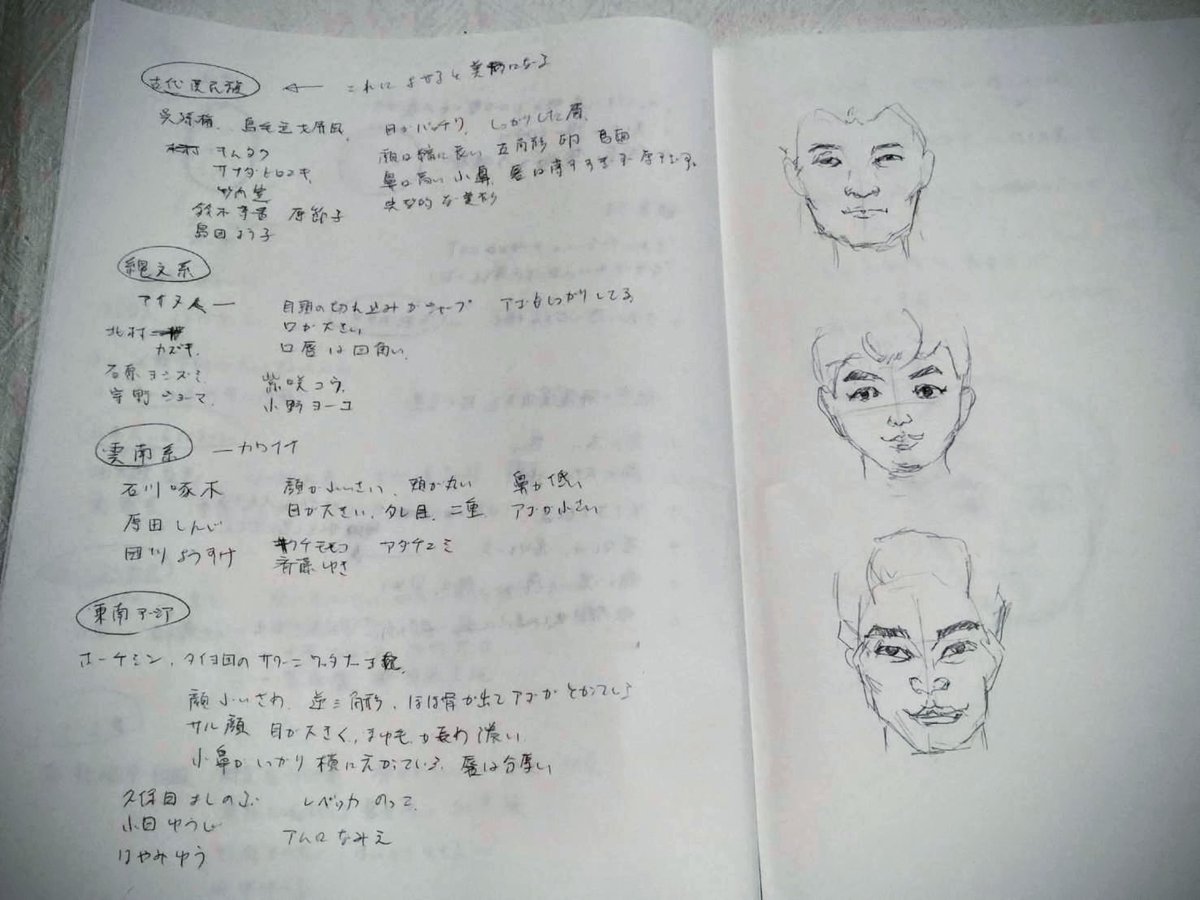 古代漢民族 ← これによせると美形になる
呉清源、 目がパッチリ、しっかりした眉
キムタク 顔は縦に長い 五角形 卵
サナダヒロユキ 鼻は高い 小鼻、唇は薄すぎず厚すぎず
竹内 典型的な美形
鈴木 原節子
島田よう子
縄文系
アイヌ 目頭の切れ込みがシャープ アゴもしっかりしてる
北村 口が大きい
カズキ 口唇は四角い
石原ヨシズミ 柴咲コウ
宇野ショーマ 小野ヨーコ
雲南系 ―カワイイ
石川啄木 顔が小いさい、頭が丸い 鼻が低い
原田しんじ 目が大きい、タレ目、二重 アゴが小さい
田川ようすけ アダチユミ
斉藤ゆき
東南アジア
ホーチミン、タイ国のサワーニ
顔小いさめ 逆三角形、ほほ骨が出てアゴがとがっている
サル顔 目が大きく、まゆも 濃い
小鼻がしっかり横に 唇は分厚い
久保田よしのぶ レベッカ のっこ
小田ゆうじ アムロなみえ
はやみゆう